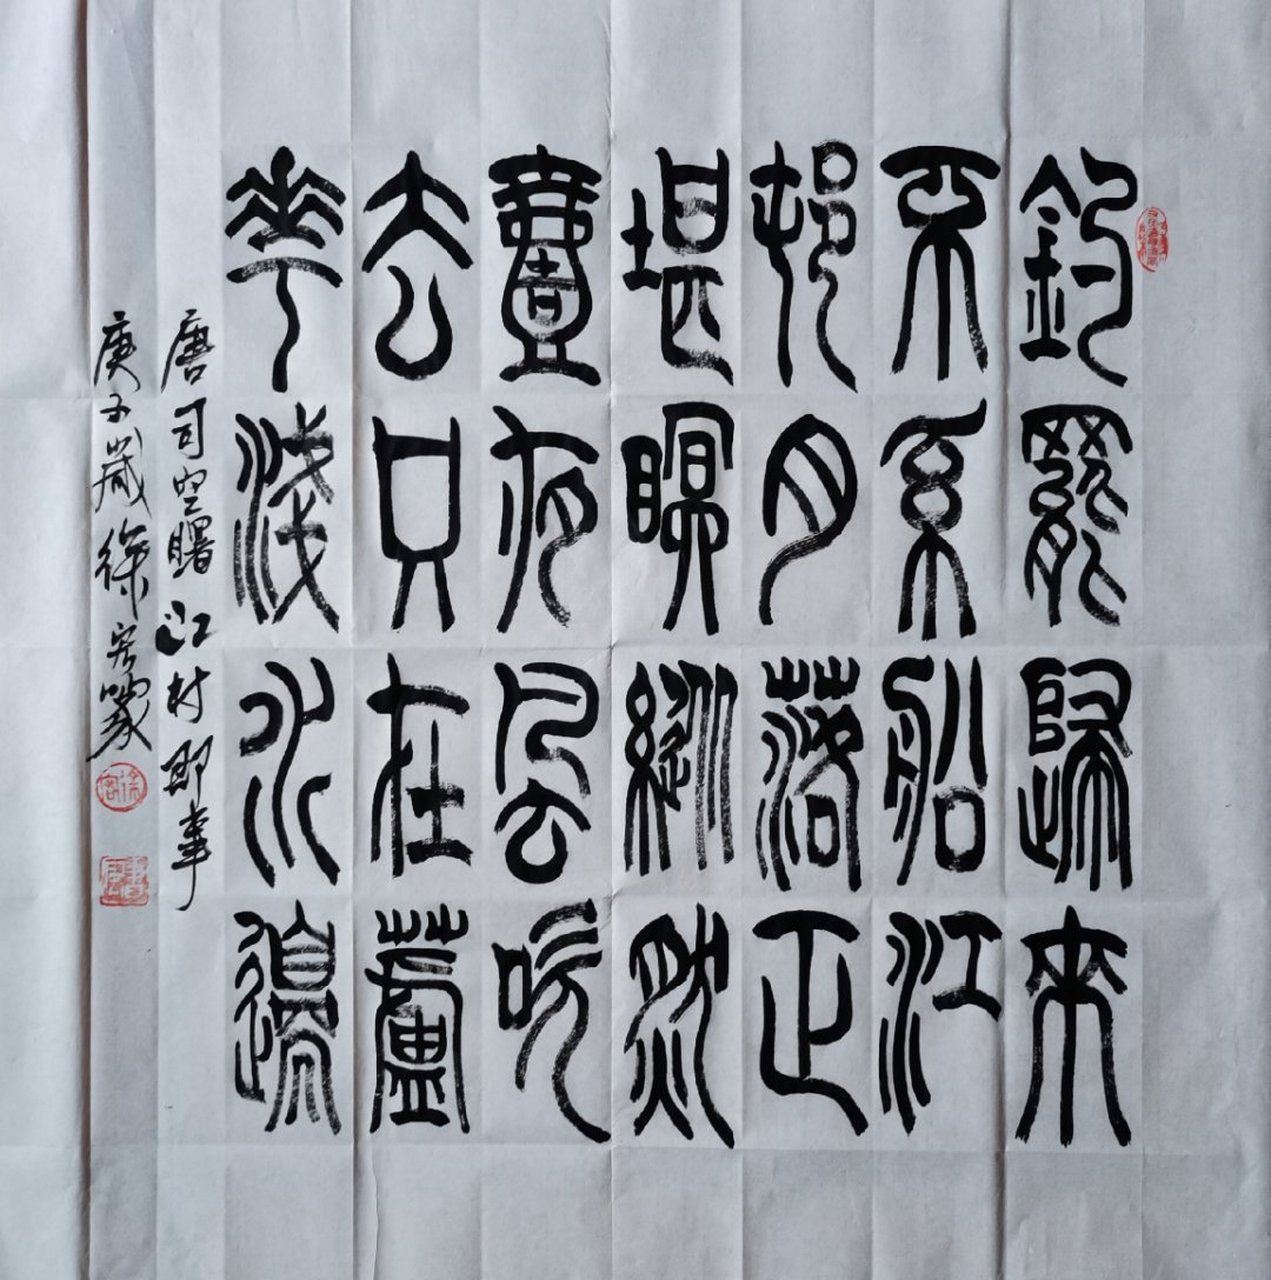 釣罷歸來
不系船江
邨月落正
堪眠縱然
壹夜風吹
去只在蘆
華淺水邊
唐司空曙江村即事
庚子歲徐篆